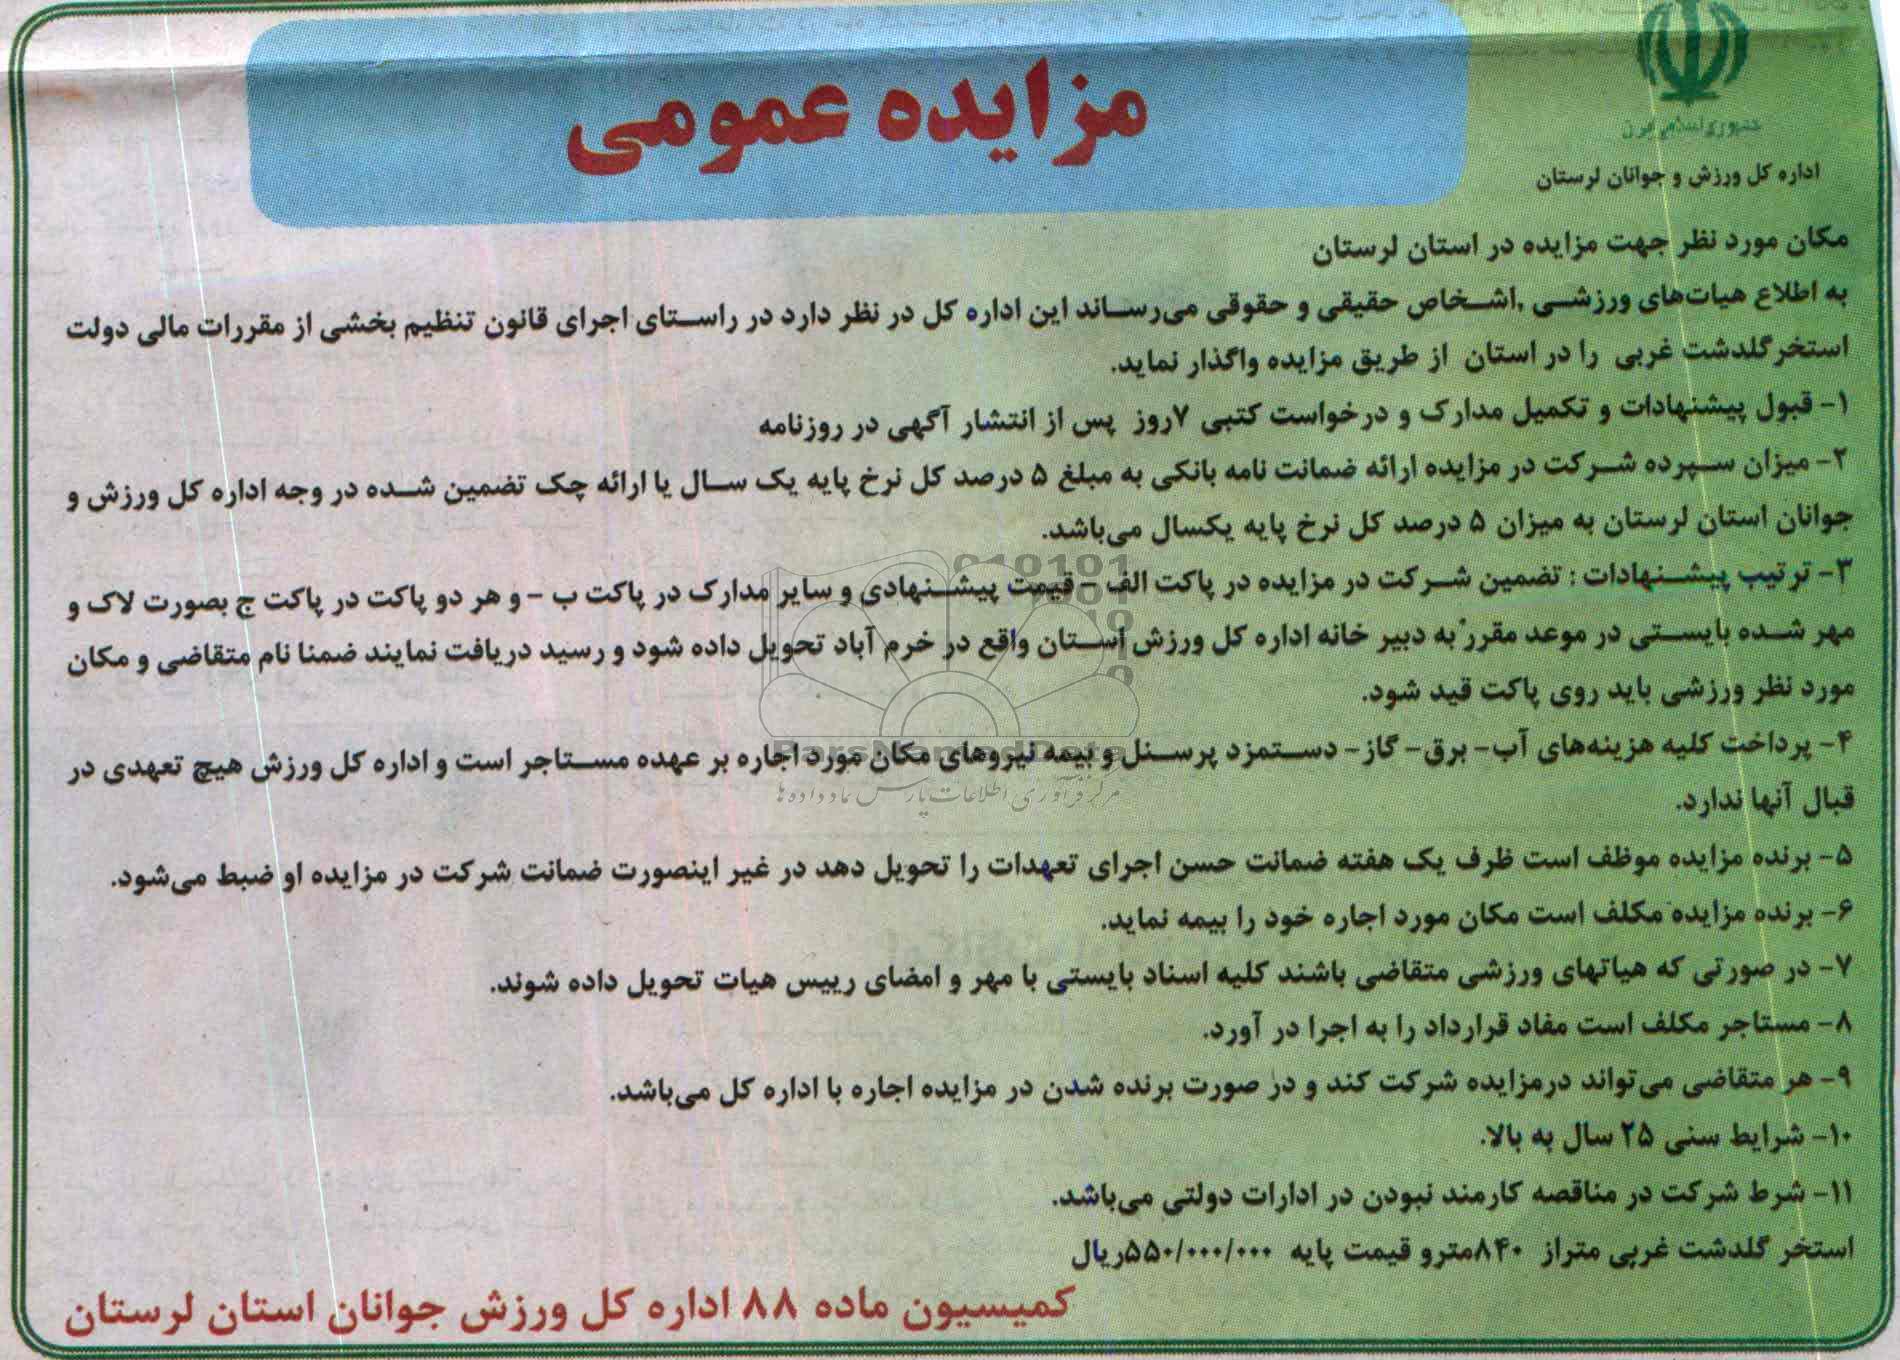 جمهوری اسلامی ایران
اداره کل ورزش و جوانان لرستان
مزایده عمومی
مکان مورد نظر جهت مزایده در استان لرستان
به اطلاع هیات‌های ورزشی ,اشخاص حقیقی و حقوقی می‌رساند این اداره کل در نظر دارد در راستای اجرای قانون تنظیم بخشی از مقررات مالی دولت
استخرگلدشت غربی را در استان از طریق مزایده واگذار نماید.
۱- قبول پیشنهادات و تکمیل مدارک و درخواست کتبی ۷روز پس از انتشار آگهی در روزنامه
۲- میزان سپرده شرکت در مزایده ارائه ضمانت نامه بانکی به مبلغ ۵ درصد کل نرخ پایه یک سال یا ارائه چک تضمین شده در وجه اداره کل ورزش و
جوانان استان لرستان به میزان ۵ درصد کل نرخ پایه یکسال می‌باشد.
۳- ترتیب پیشنهادات : تضمین شرکت در مزایده در پاکت الف – قیمت پیشنهادی و سایر مدارک در پاکت ب – و هر دو پاکت در پاکت ج بصورت لاک و
مهر شده بایستی در موعد مقرر به دبیر خانه اداره کل ورزش استان واقع در خرم آباد تحویل داده شود و رسید دریافت نمایند ضمنا نام متقاضی و مکان
مورد نظر ورزشی باید روی پاکت قید شود.
۴- پرداخت کلیه هزینه‌های آب- برق- گاز- دستمزد پرسنل و بیمه نیروهای مکان مورد اجاره بر عهده مستاجر است و اداره کل ورزش هیچ تعهدی در
قبال آنها ندارد.
۵- برنده مزایده موظف است ظرف یک هفته ضمانت حسن اجرای تعهدات را تحویل دهد در غیر اینصورت ضمانت شرکت در مزایده او ضبط می‌شود.
۶- برنده مزایده مکلف است مکان مورد اجاره خود را بیمه نماید.
۷- در صورتی که هیاتهای ورزشی متقاضی باشند کلیه اسناد بایستی با مهر و امضای رییس هیات تحویل داده شوند.
۸- مستاجر مکلف است مفاد قرارداد را به اجرا در آورد.
۹- هر متقاضی می‌تواند درمزایده شرکت کند و در صورت برنده شدن در مزایده اجاره با اداره کل می‌باشد.
۱۰- شرایط سنی ۲۵ سال به بالا.
۱۱- شرط شرکت در مناقصه کارمند نبودن در ادارات دولتی می‌باشد.
استخر گلدشت غربی متراز ۸۴۰مترو قیمت پایه ۵۵۰/۰۰۰/۰۰۰ریال
کمیسیون ماده ۸۸ اداره کل ورزش جوانان استان لرستان
ParsNamadData
مرکز فرآوری اطلاعات پارس نماد داده ها